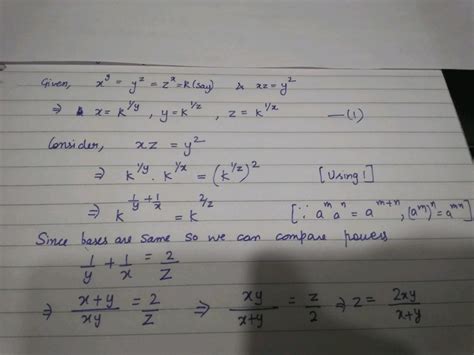 Given, x^y = y^z = z^x = k (say) & xz = y^2
⇒ x = k^{1/y}, y = k^{1/z}, z = k^{1/x} —(1)
Consider, xz = y^2
⇒ k^{1/y} · k^{1/x} = (k^{1/z})^2 [Using 1]
⇒ k^{1/y + 1/x} = k^{2/z} [∵ a^m a^n = a^{m+n}, (a^m)^n = a^{mn}]
Since bases are same so we can compare powers
1/y + 1/x = 2/z
⇒ x+y/xy = 2/z ⇒ xy/x+y = z/2 ⇒ z = 2xy/x+y